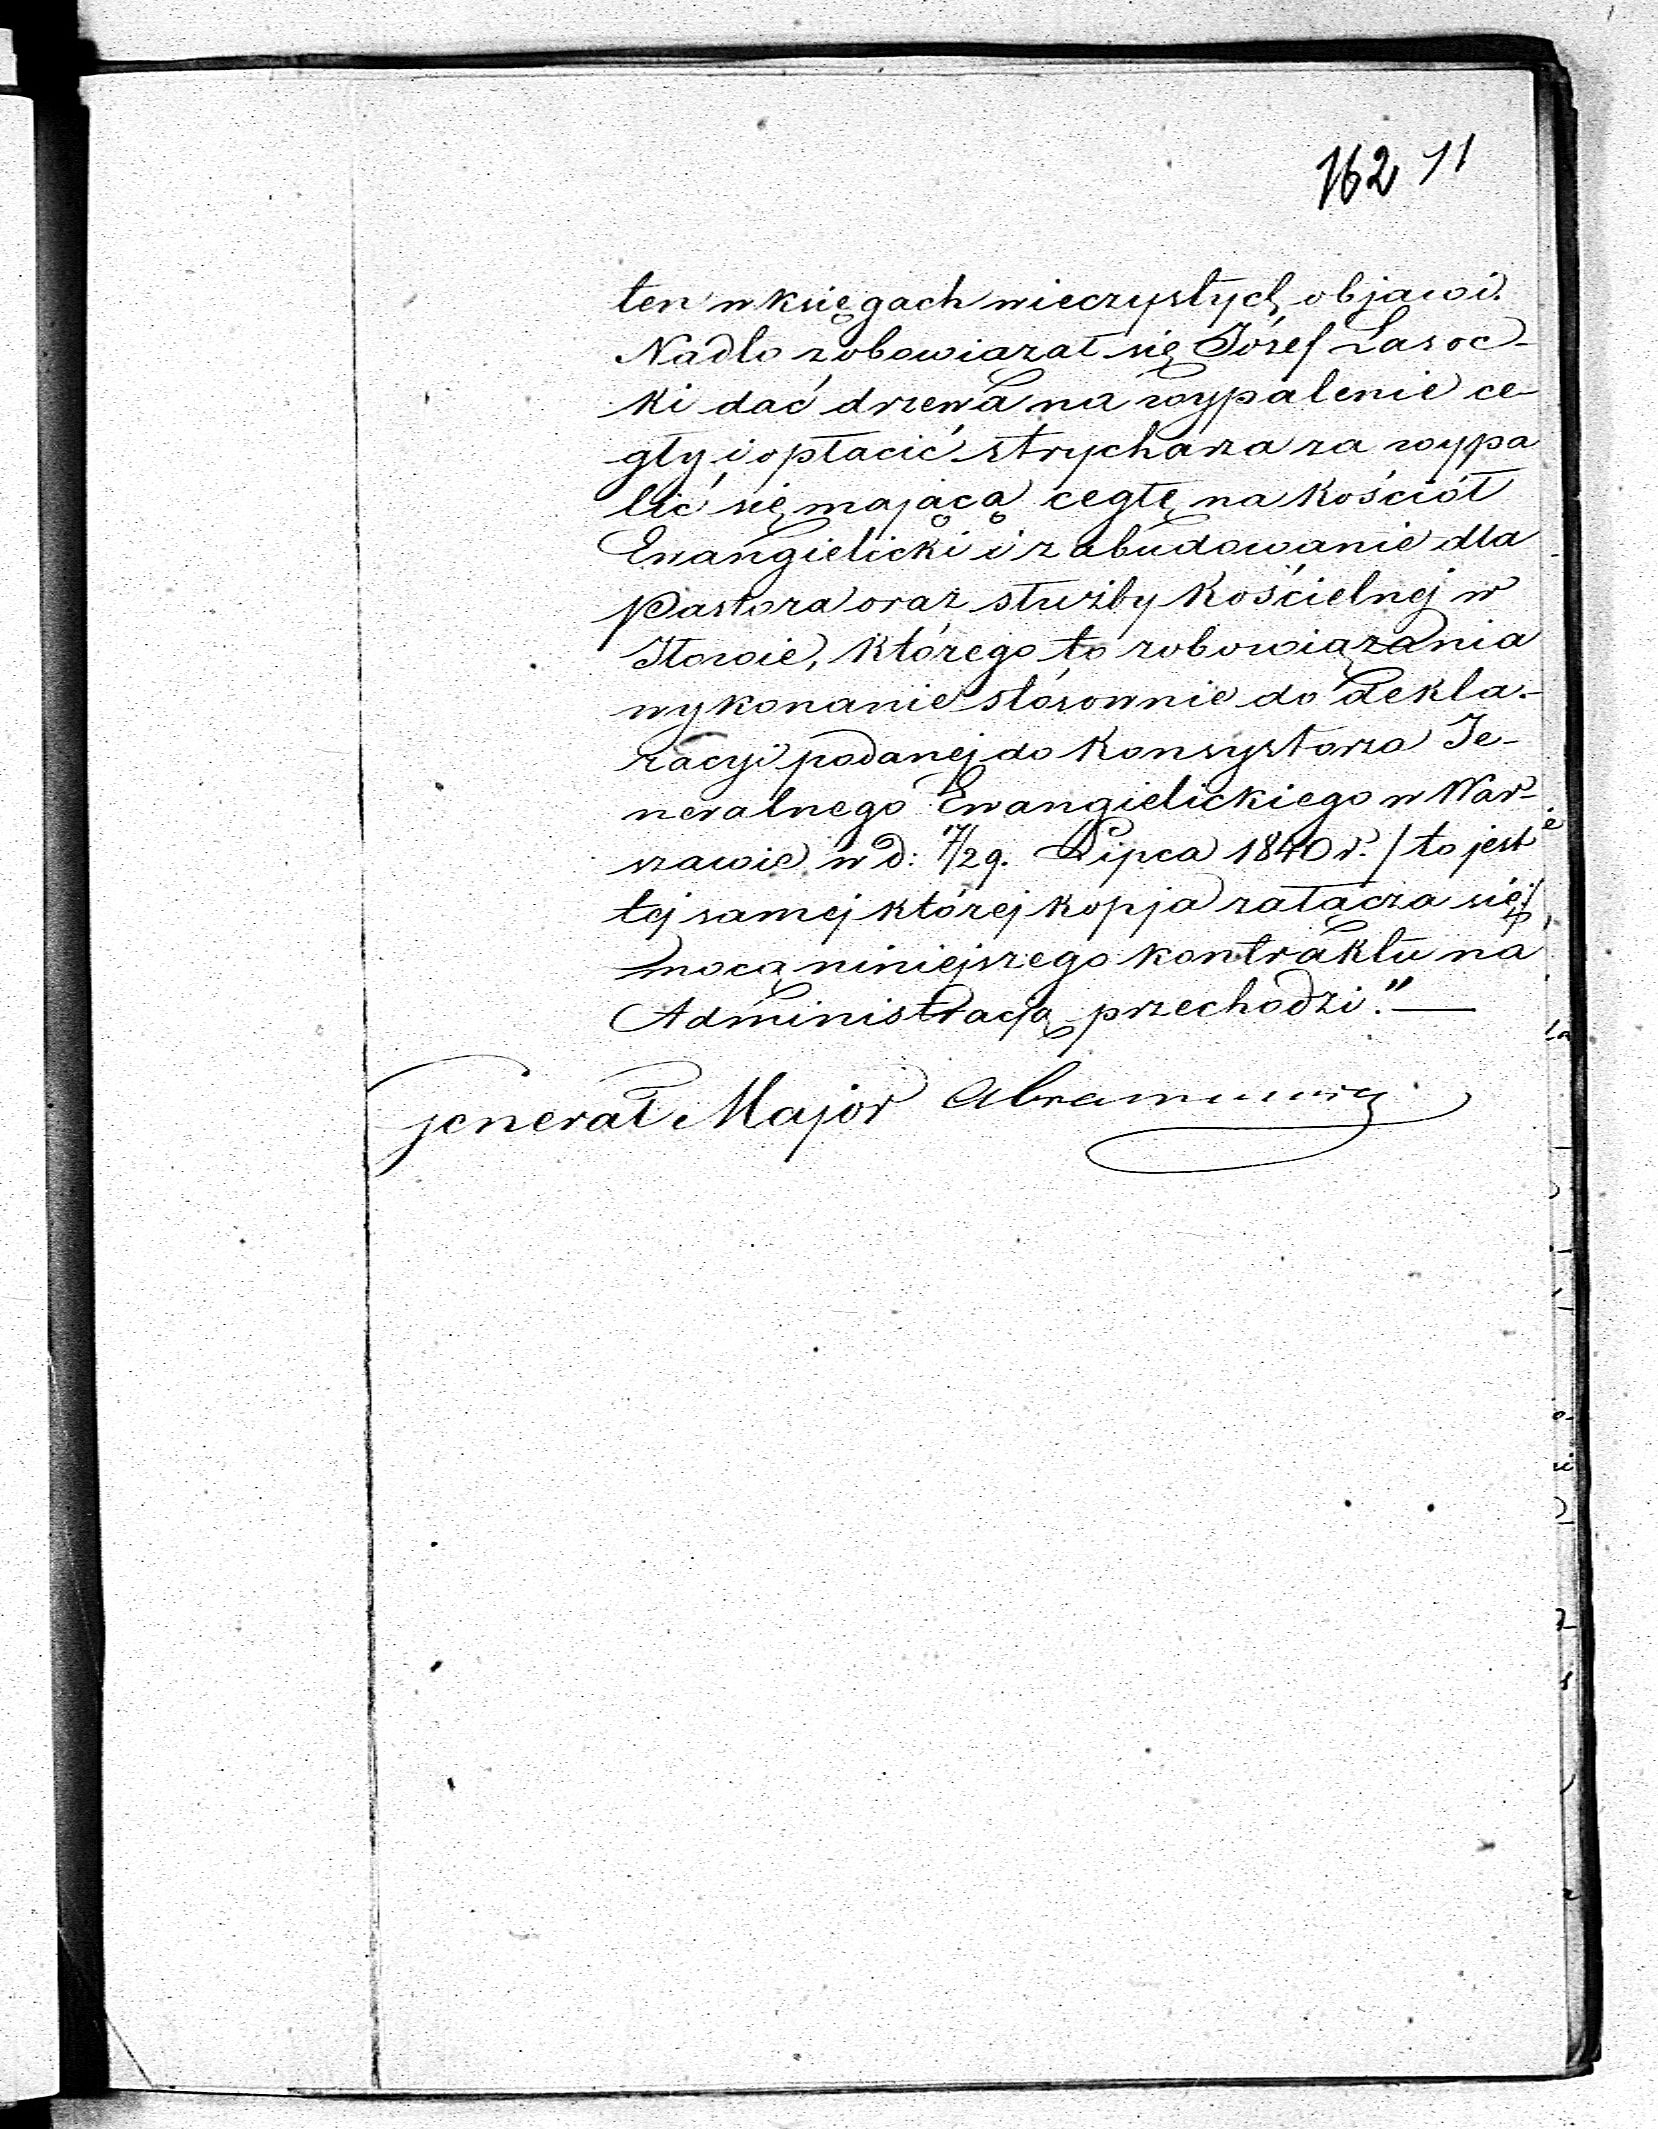 162 11
ten w księgach wieczystych objawi.
Nadto zobowiazał się Józef Lasoc-
ki dać drzewa na wypalenie ce-
gły i opłacić strycharza za wypa
lić się mającą cegłę na kościół
Ewangielicki i zabudowanie dla
Pastora oraz służby kościelnej w
Iłowie, którego to zobowiązania
wykonanie stósownie do dekla-
racyi podanej do Konsystorza Je-
neralnego Ewangielickiego w War-
szawie w d: 17/29. Lipca 1840 r. / to jest
tej samej której kopja załącza się /
mocą niniejszego kontraktu na
Administracją przechodzi." —
Jenerał Major